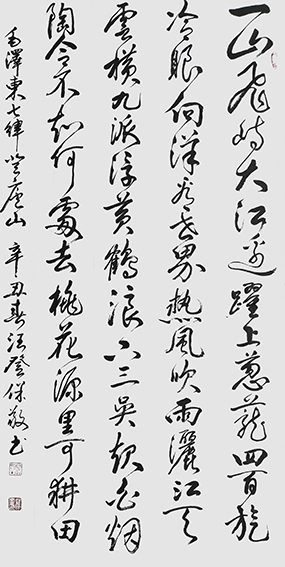 一山飛峙大江邊躍上蔥蘢四百旋
冷眼向洋看世界熱風吹雨灑江天
雲橫九派浮黃鶴浪下三吳起白烟
陶令不知何處去桃花源里可耕田
毛澤東七律登廬山 辛丑春 登保敬书